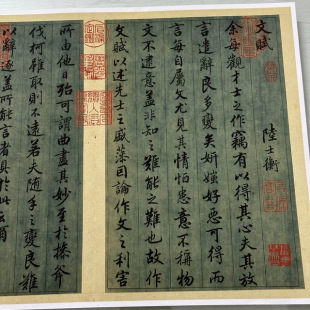 文賦
陸士衡
余每觀才士之作竊有以得其心夫其放
言遣辭良多變矣妍媸好惡可得而
言每自屬文尤見其情恆患意不稱物
文不逮意蓋非知之難能之難也故作
文賦以述先士之盛藻因論作文之利害
所由他日殆可謂曲盡其妙至於操斧
伐柯雖取則不遠若夫隨手之變良難
以辭逮蓋所能言者具於此云爾